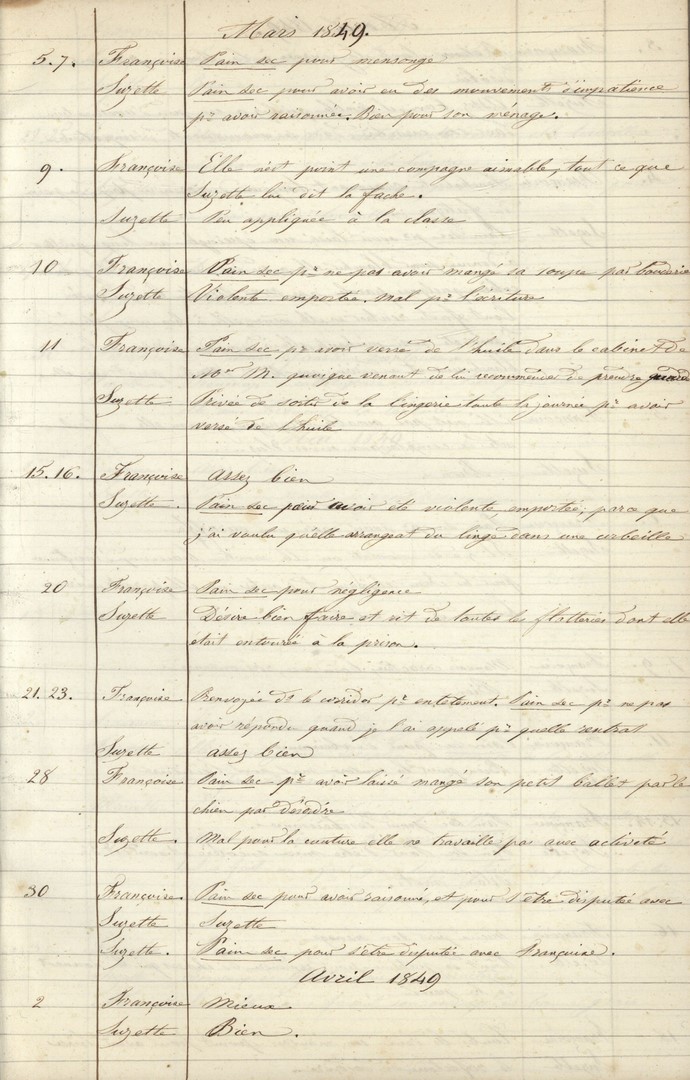 Mars 1849.
5. 7. Françoise Pain sec pour mensonge
Suzette Pain sec pour avoir eu des mouvements d'impatience
pr avoir raisonnée. Bien pour son ménage.
9. Françoise Elle n'est point une compagne aimable, tout ce que
Suzette lui dit la fache.
Suzette Peu appliquée à la classe
10 Françoise Pain sec pr ne pas avoir mangé sa soupe par bouderie
Suzette Violente emportée. Mal pr l'écriture
11 Françoise Pain sec pr avoir versé de l'huile dans le cabinet de
M. quoique venant de lui recommander de prendre garde
Suzette Privée de sortir de la lingerie toute la journée pr avoir
versé de l'huile
15. 16. Françoise assez bien
Suzette. Pain sec pour avoir été violente, emportée; parce que
j'ai voulu qu'elle arrangeat du linge dans une corbeille
20 Françoise Pain sec pour négligence
Suzette Désire bien faire et rit de toutes les flatteries dont elle
était entourée à la prison.
21. 23. Françoise Renvoyée ds le corridor pr entêtement. Pain sec pr ne pas
avoir répondu quand je l'ai appelé pr quelle rentrat
Suzette assez bien
28 Françoise Pain sec pr avoir laissé mangé son petit ballet par le
chien par désordre
Suzette. Mal pour la couture elle ne travaille pas avec activeté
30 Françoise. Pain sec pour avoir raisonné, et pour s'etre disputée avec
Suzette Suzette
Suzette. Pain sec pour s'etre disputée avec Françoise.
Avril 1849
2 Françoise Mieux
Suzette Bien.